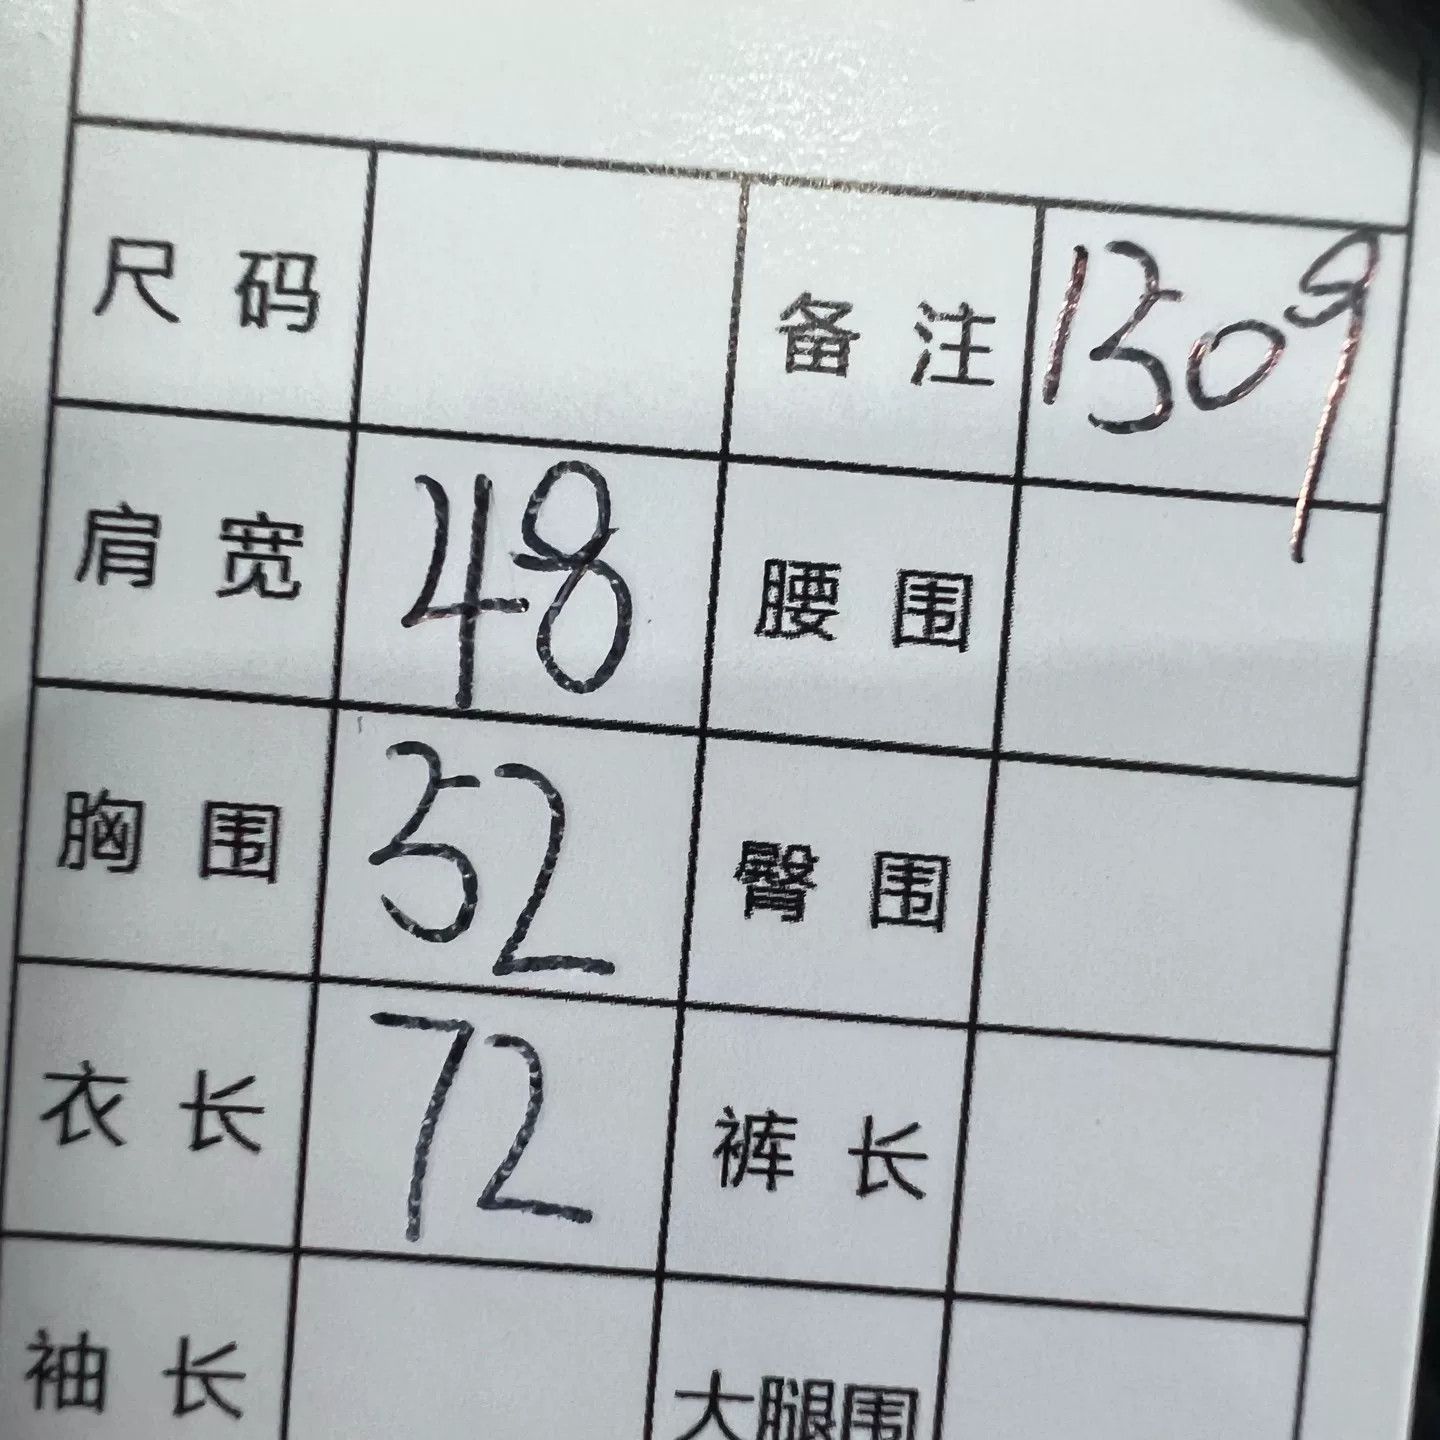 尺 码 备 注 150g
肩 宽 48 腰 围
胸 围 52 臀 围
衣 长 72 裤 长
袖 长 大腿围